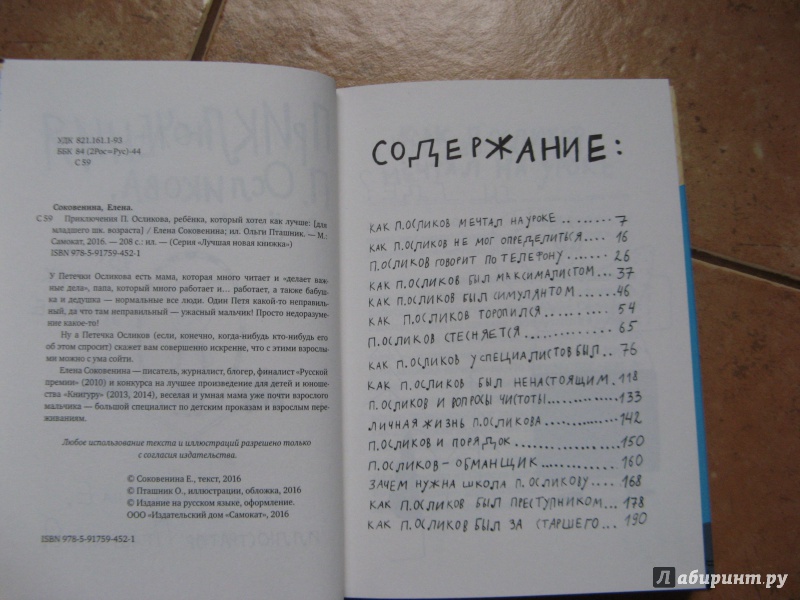 УДК 821.161.1-93
ББК 84 (2Рос=Рус)-44
С 59
Соковенина, Елена.
С 59 Приключения П. Осликова, ребёнка, который хотел как лучше: [для
младшего шк. возраста] / Елена Соковенина; ил. Ольги Пташник. — М.:
Самокат, 2016. — 208 с.: ил. — (Серия «Лучшая новая книжка»)
ISBN 978-5-91759-452-1
У Петечки Осликова есть мама, которая много читает и «делает важ-
ные дела», папа, который много работает и... работает, а также бабуш-
ка и дедушка — нормальные все люди. Один Петя какой-то неправиль-
ный, да что там неправильный — ужасный мальчик! Просто недоразуме-
ние какое-то!
Ну а Петечка Осликов (если, конечно, когда-нибудь кто-нибудь его
об этом спросит) скажет вам совершенно искренне, что с этими взрослы-
ми можно с ума сойти.
Елена Соковенина — писатель, журналист, блогер, финалист «Русской
премии» (2010) и конкурса на лучшее произведение для детей и юноше-
ства «Книгуру» (2013, 2014), веселая и умная мама уже почти взрослого
мальчика — большой специалист по детским проказам и взрослым пере-
живаниям.
Любое использование текста и иллюстраций разрешено только
с согласия издательства.
© Соковенина Е., текст, 2016
© Пташник О., иллюстрации, обложка, 2016
© Издание на русском языке, оформление.
ООО «Издательский дом «Самокат», 2016
ISBN 978-5-91759-452-1
СОДЕРЖАНИЕ:
КАК П.ОСЛИКОВ МЕЧТАЛ НА УРОКЕ ......... 7
КАК П.ОСЛИКОВ НЕ МОГ ОПРЕДЕЛИТЬСЯ.... 16
П.ОСЛИКОВ ГОВОРИТ ПО ТЕЛЕФОНУ .... 26
КАК П.ОСЛИКОВ БЫЛ МАКСИМАЛИСТОМ.... 37
КАК П.ОСЛИКОВ БЫЛ СИМУЛЯНТОМ .... 46
КАК П.ОСЛИКОВ ТОРОПИЛСЯ .... 54
П.ОСЛИКОВ СТЕСНЯЕТСЯ ......... 65
КАК П.ОСЛИКОВ У СПЕЦИАЛИСТОВ БЫЛ .. 76
КАК П.ОСЛИКОВ БЫЛ НЕНАСТОЯЩИМ. 118
П.ОСЛИКОВ И ВОПРОСЫ ЧИСТОТЫ........ 133
ЛИЧНАЯ ЖИЗНЬ П.ОСЛИКОВА ......... 142
П.ОСЛИКОВ И ПОРЯДОК ............ 150
П.ОСЛИКОВ - ОБМАНЩИК.......... 160
ЗАЧЕМ НУЖНА ШКОЛА П.ОСЛИКОВУ.... 168
КАК П.ОСЛИКОВ БЫЛ ПРЕСТУПНИКОМ.... 178
КАК П.ОСЛИКОВ БЫЛ ЗА СТАРШЕГО.... 190
Лабиринт.ру